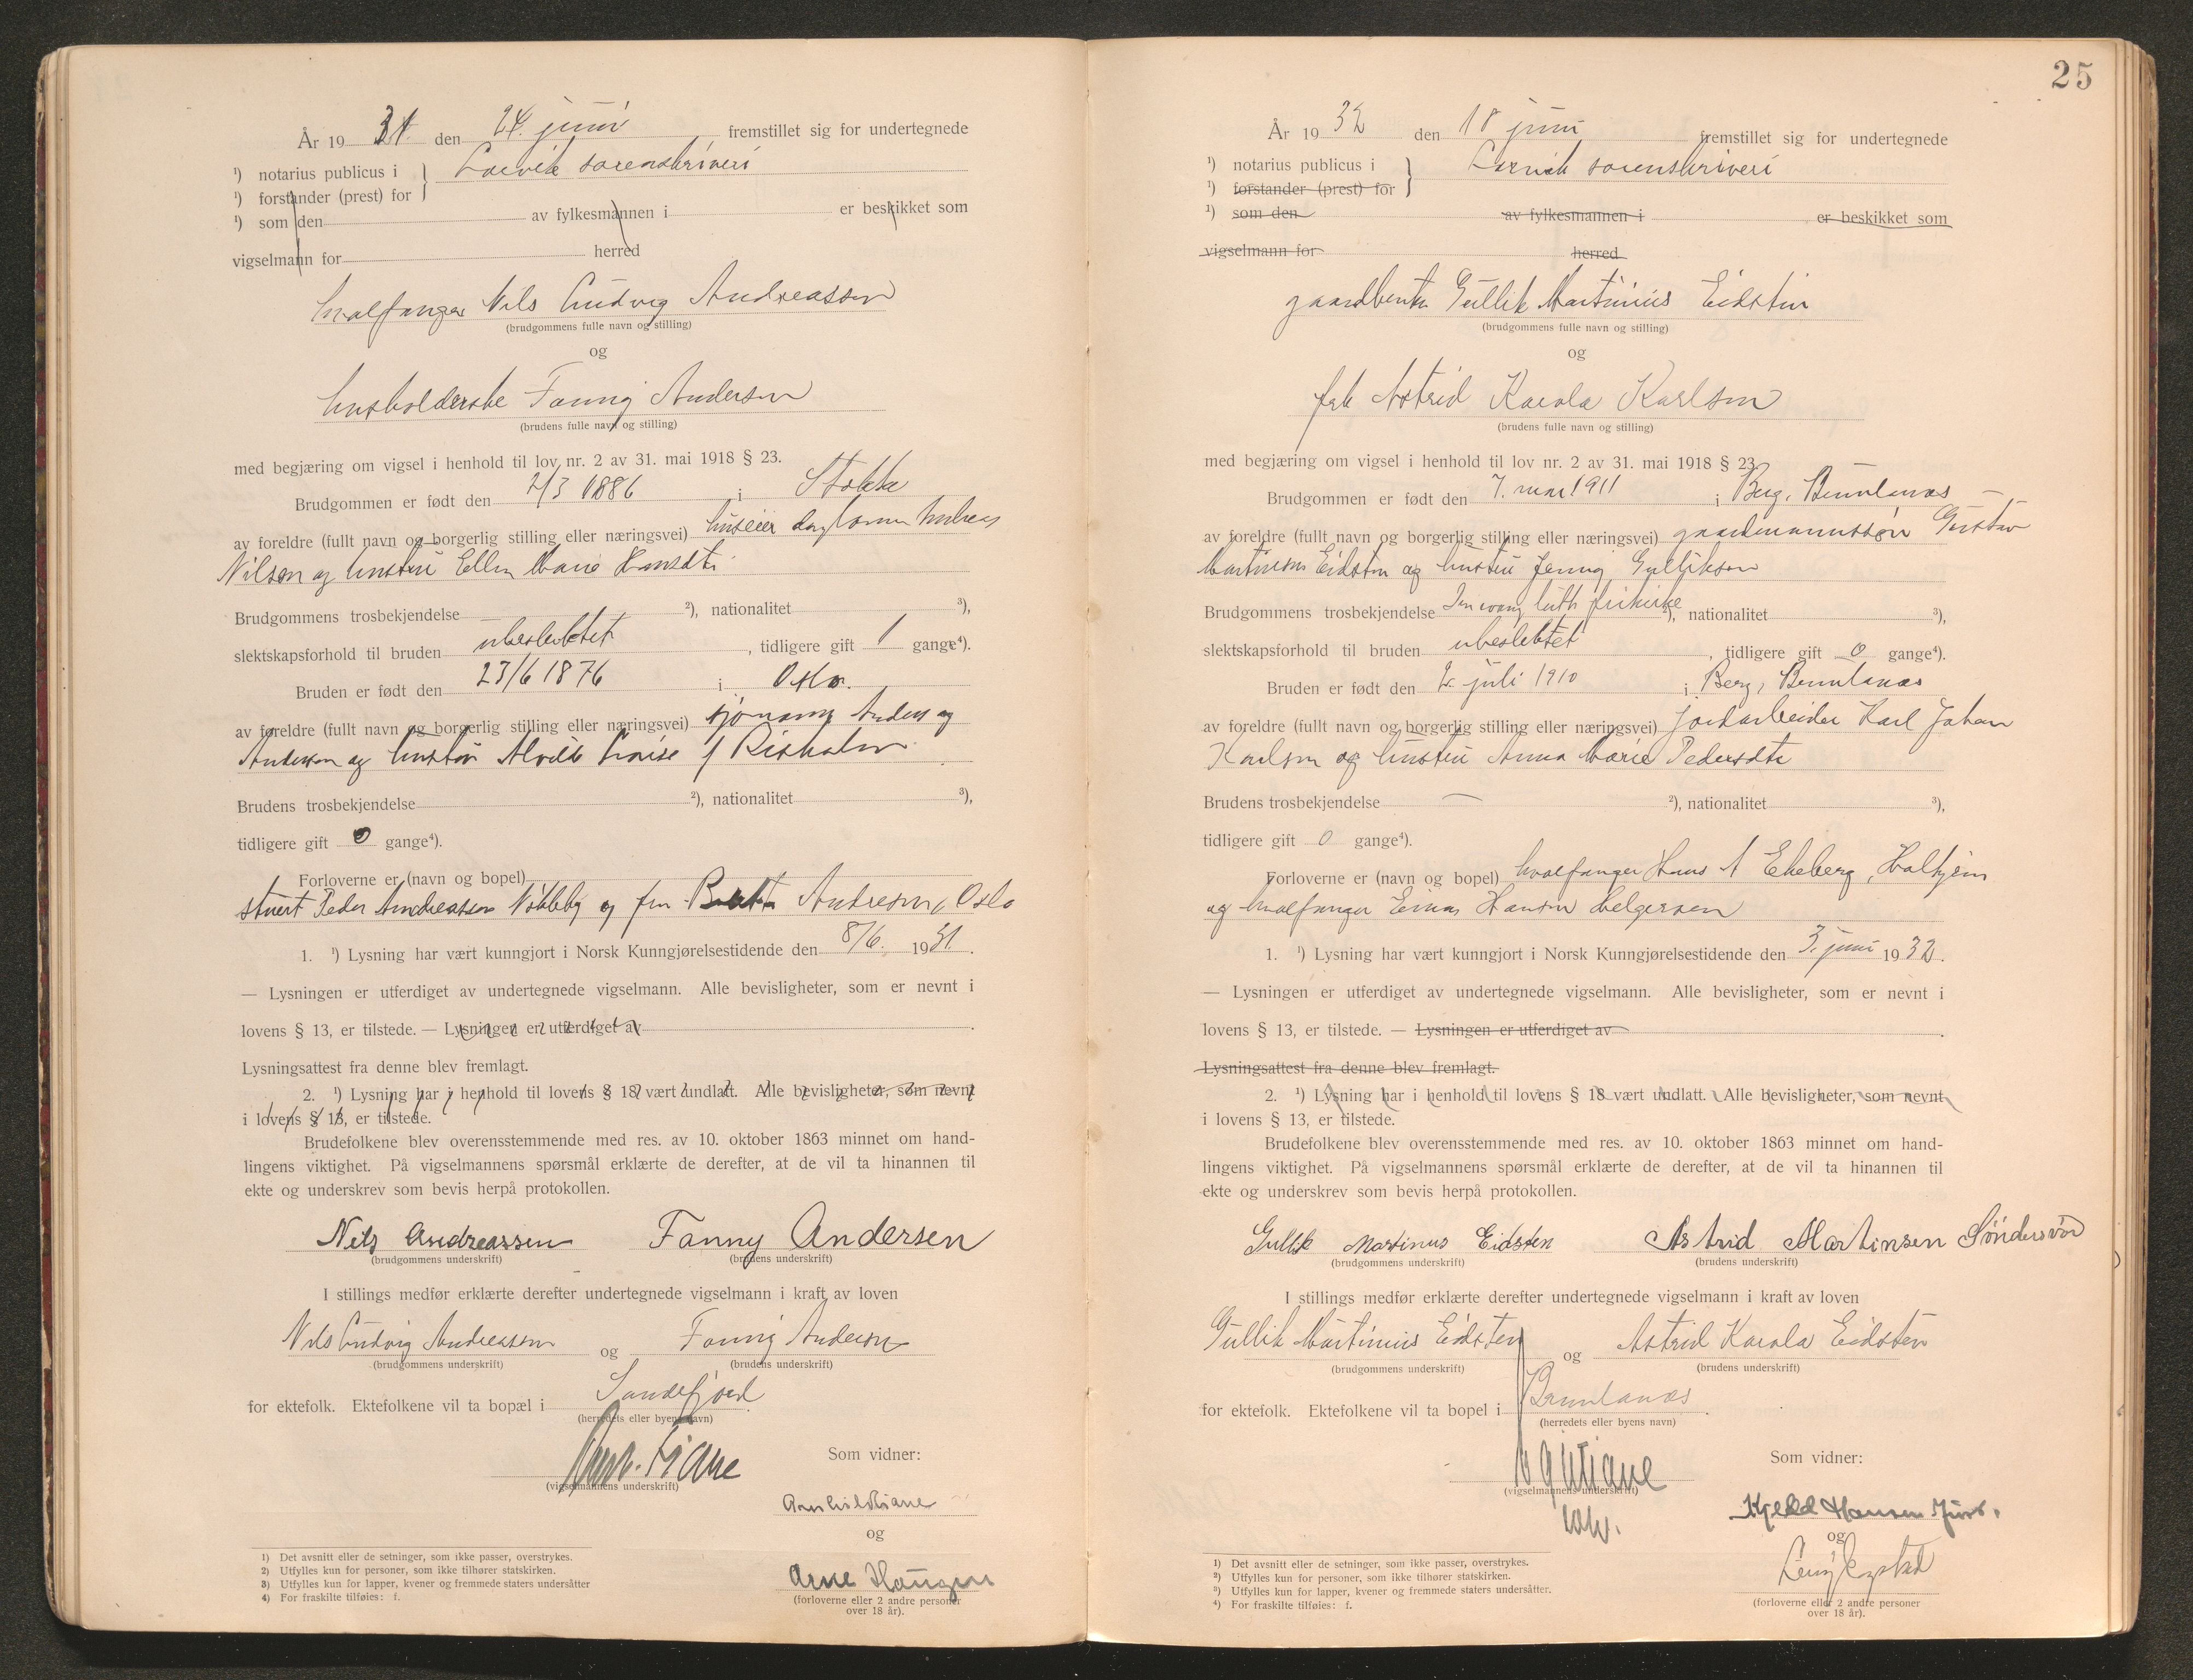 År 19 31 den 24. juni fremstillet sig for undertegnede
¹) notarius publicus i } Larvik sorenskriveri
¹) forstander (prest) for
¹) som den av fylkesmannen i er beskikket som
vigselmann for herred
hvalfanger Nils Ludvig Andreassen
(brudgommens fulle navn og stilling)
og
husholderske Fanny Andersen
(brudens fulle navn og stilling)
med begjæring om vigsel i henhold til lov nr. 2 av 31. mai 1918 § 23.
Brudgommen er født den 2/3 1886 i Stokke
av foreldre (fullt navn og borgerlig stilling eller næringsvei) huseier Andreas
Nilsen og hustru Ellen Marie Hansdtr
Brudgommens trosbekjendelse ²), nationalitet ³),
slektskapsforhold til bruden ubeslektet, tidligere gift 1 gange⁴).
Bruden er født den 23/6 1876 i Oslo.
av foreldre (fullt navn og borgerlig stilling eller næringsvei) sjømann Anders
Andersen og hustru Alvilde Lovise f
Brudens trosbekjendelse ²), nationalitet ³),
tidligere gift 0 gange⁴).
Forloverne er (navn og bopel)
stuert Peder Andreassen Nøtteby og fru Andresen, Oslo
1. ¹) Lysning har vært kunngjort i Norsk Kunngjørelsestidende den 8/6. 1931.
— Lysningen er utferdiget av undertegnede vigselmann. Alle bevisligheter, som er nevnt i
lovens § 13, er tilstede. — Lysningen er utferdiget av .
Lysningsattest fra denne blev fremlagt.
2. ¹) Lysning har i henhold til lovens § 18 vært undlatt. Alle bevisligheter, som nevnt
i lovens § 13, er tilstede.
Brudefolkene blev overensstemmende med res. av 10. oktober 1863 minnet om hand-
lingens viktighet. På vigselmannens spørsmål erklærte de derefter, at de vil ta hinannen til
ekte og underskrev som bevis herpå protokollen.
Nils Andreassen Fanny Andersen
(brudgommens underskrift) (brudens underskrift)
I stillings medfør erklærte derefter undertegnede vigselmann i kraft av loven
Nils Ludvig Andreassen og Fanny Andersen
(brudgommens underskrift) (brudens underskrift)
for ektefolk. Ektefolkene vil ta bopæl i Sandefjord
(herredets eller byens navn)
Som vidner:
(vigselmannens underskrift)
og
Arne Haugen
(forloverne eller 2 andre personer
over 18 år).
1) Det avsnitt eller de setninger, som ikke passer, overstrykes.
2) Utfylles kun for personer, som ikke tilhører statskirken.
3) Utfylles kun for lapper, kvener og fremmede staters undersåtter
4) For fraskilte tilføies: f.
25
År 19 32 den 18 juni fremstillet sig for undertegnede
¹) notarius publicus i } Larvik sorenskriveri
¹) forstander (prest) for
¹) som den av fylkesmannen i er beskikket som
vigselmann for herred
Gullik Martinius Eidsten
(brudgommens fulle navn og stilling)
og
frk Astrid Karola Karlsen
(brudens fulle navn og stilling)
med begjæring om vigsel i henhold til lov nr. 2 av 31. mai 1918 § 23.
Brudgommen er født den 7. mai 1911 i Berg, Brunlanæs
av foreldre (fullt navn og borgerlig stilling eller næringsvei) gaardmannssøn Gustav
Martinsen Eidsten og hustru Jenny Gulliksen
Brudgommens trosbekjendelse Den evang luth frikirke ²), nationalitet ³),
slektskapsforhold til bruden ubeslektet, tidligere gift 0 gange⁴).
Bruden er født den 2. juli 1910 i Berg, Brunlanæs
av foreldre (fullt navn og borgerlig stilling eller næringsvei) jordarbeider Karl Johan
Karlsen og hustru Anna Marie Pedersdtr
Brudens trosbekjendelse — ²), nationalitet ³),
tidligere gift 0 gange⁴).
Forloverne er (navn og bopel) hvalfanger Hans A Ekeberg, Holtjern
og hvalfanger Einar Hansen Helgeroen
1. ¹) Lysning har vært kunngjort i Norsk Kunngjørelsestidende den 3. juni 1932.
— Lysningen er utferdiget av undertegnede vigselmann. Alle bevisligheter, som er nevnt i
lovens § 13, er tilstede. — Lysningen er utferdiget av .
Lysningsattest fra denne blev fremlagt.
2. ¹) Lysning har i henhold til lovens § 18 vært undlatt. Alle bevisligheter, som nevnt
i lovens § 13, er tilstede.
Brudefolkene blev overensstemmende med res. av 10. oktober 1863 minnet om hand-
lingens viktighet. På vigselmannens spørsmål erklærte de derefter, at de vil ta hinannen til
ekte og underskrev som bevis herpå protokollen.
Gullik Martinus Eidsten Astrid Martinsen
(brudgommens underskrift) (brudens underskrift)
I stillings medfør erklærte derefter undertegnede vigselmann i kraft av loven
Gullik Martinius Eidsten og Astrid Karola Eidsten
(brudgommens underskrift) (brudens underskrift)
for ektefolk. Ektefolkene vil ta bopel i Brunlanæs.
(herredets eller byens navn)
Som vidner:
(vigselmannens underskrift)
Kjeld Hansen
og
(forloverne eller 2 andre personer
over 18 år).
1) Det avsnitt eller de setninger, som ikke passer, overstrykes.
2) Utfylles kun for personer, som ikke tilhører statskirken.
3) Utfylles kun for lapper, kvener og fremmede staters undersåtter.
4) For fraskilte tilføies: f.